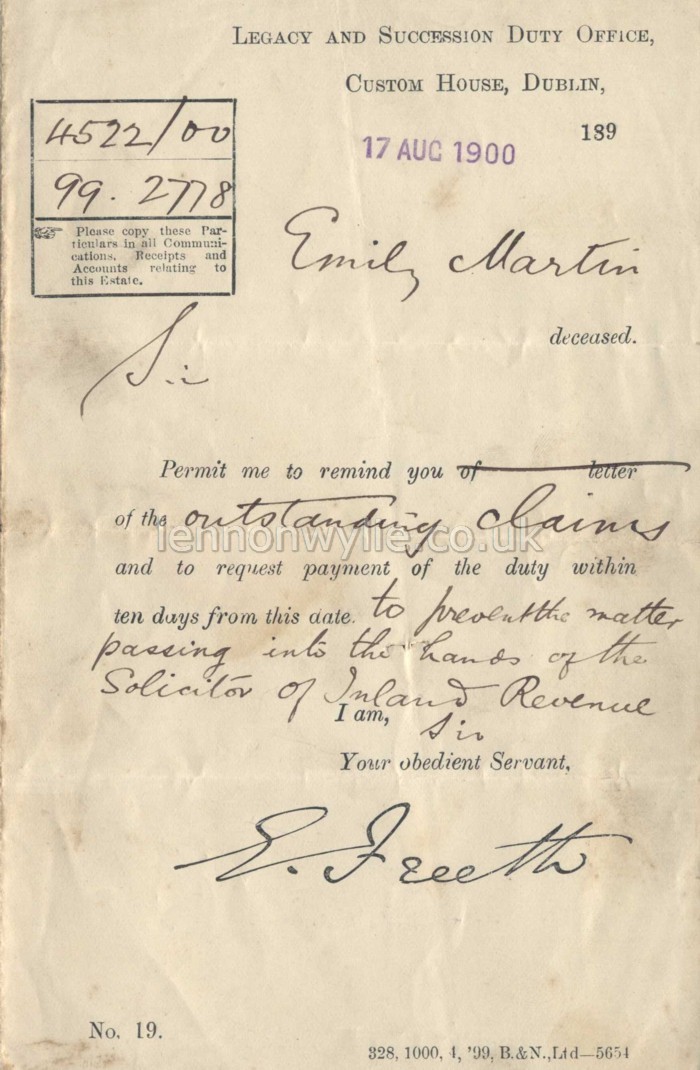 LEGACY AND SUCCESSION DUTY OFFICE,
CUSTOM HOUSE, DUBLIN,
189
17 AUG 1900
4522/00
99. 2778
Please copy these Par-
ticulars in all Communi-
cations, Receipts and
Accounts relating to
this Estate.
Emily Martin
deceased.
Sir
Permit me to remind you of letter
of the outstanding claims
lennonwylie.co.uk
and to request payment of the duty within
ten days from this date. to prevent the matter
passing into the hands of the
Solicitor of Inland Revenue
I am,
Sir
Your obedient Servant,
E. Freeth
No. 19.
328, 1000, 4, '99, B.&N.,Ltd—5654